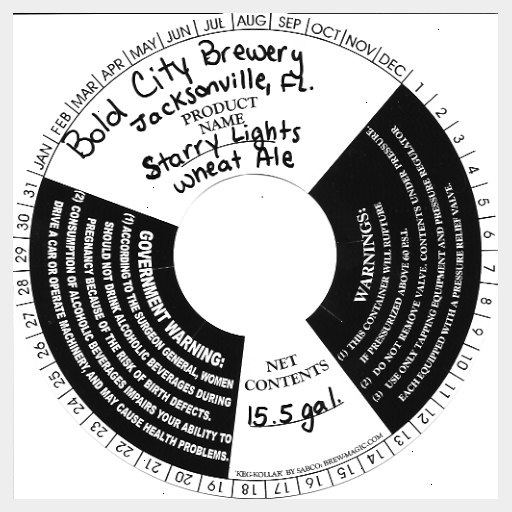 JAN FEB MAR APR MAY JUN JUL AUG SEP OCT NOV DEC
1 2 3 4 5 6 7 8 9 10 11 12 13 14 15 16 17 18 19 20 21 22 23 24 25 26 27 28 29 30 31
Bold City Brewery
Jacksonville, FL.
PRODUCT
NAME
Starry Lights
Wheat Ale
WARNINGS:
(1) THIS CONTAINER WILL RUPTURE
IF PRESSURIZED ABOVE 60 P.S.I.
(2) DO NOT REMOVE VALVE. CONTENTS UNDER PRESSURE.
(3) USE ONLY TAPPING EQUIPMENT AND PRESSURE REGULATOR
EACH EQUIPPED WITH A PRESSURE RELIEF VALVE.
NET
CONTENTS
15.5 gal.
"KEG-KOLLAR" BY SABCO: BREW-MAGIC.COM
GOVERNMENT WARNING:
(1) ACCORDING TO THE SURGEON GENERAL, WOMEN
SHOULD NOT DRINK ALCOHOLIC BEVERAGES DURING
PREGNANCY BECAUSE OF THE RISK OF BIRTH DEFECTS.
(2) CONSUMPTION OF ALCOHOLIC BEVERAGES IMPAIRS YOUR ABILITY TO
DRIVE A CAR OR OPERATE MACHINERY, AND MAY CAUSE HEALTH PROBLEMS.